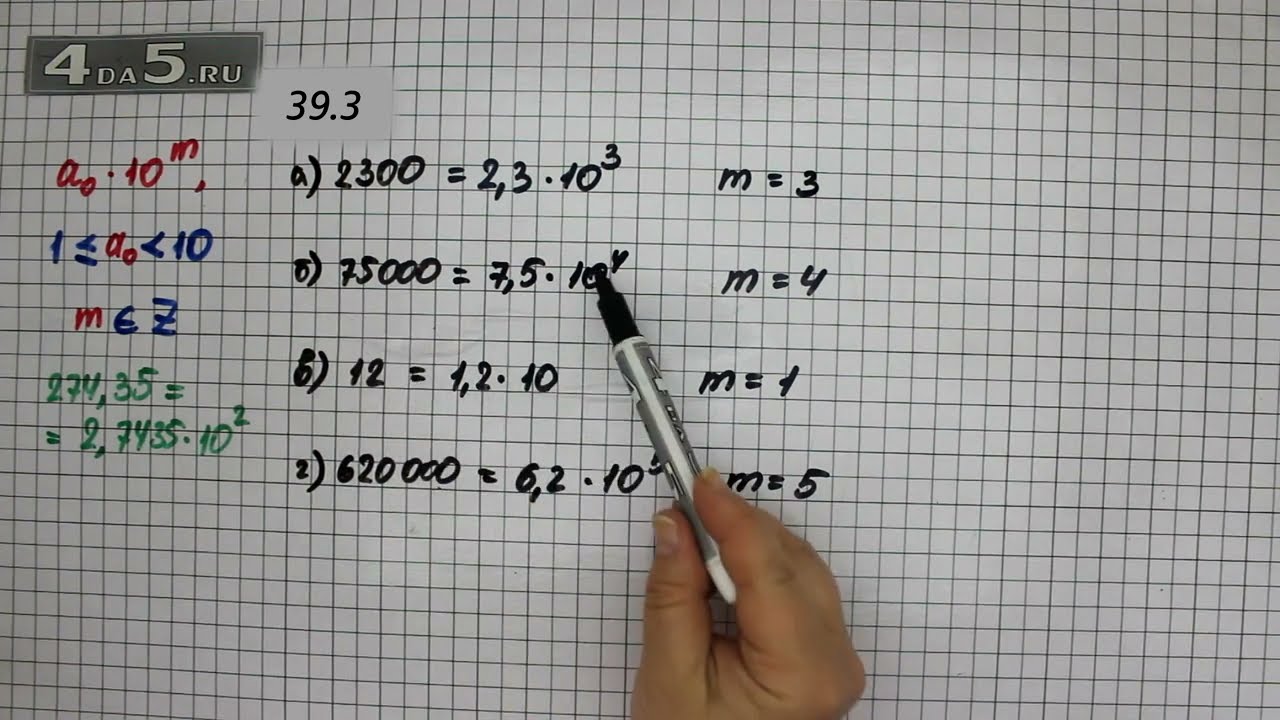 4DA5.RU
39.3
a₀ · 10ᵐ,
1 ≤ a₀ < 10
m ∈ Z
274,35 =
= 2,7435 · 10²
а) 2300 = 2,3 · 10³ m = 3
б) 75000 = 7,5 · 10⁴ m = 4
в) 12 = 1,2 · 10 m = 1
г) 620 000 = 6,2 · 10⁵ m = 5